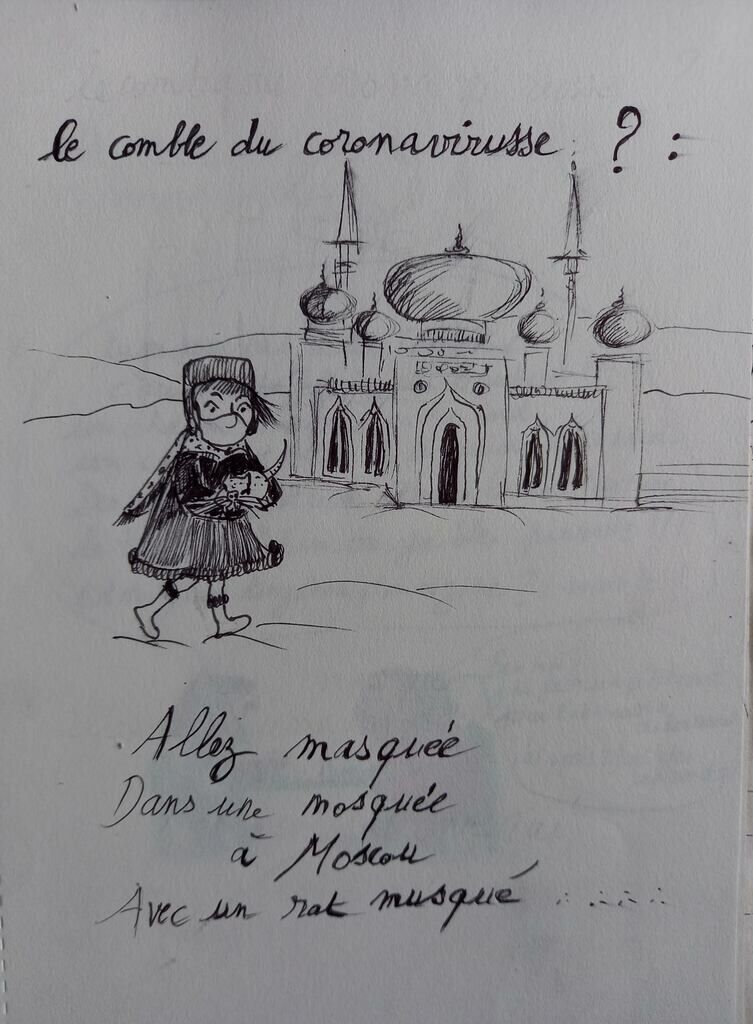 le comble du coronavirusse ? :
Allez masquée
Dans une mosquée
à Moscou
Avec un rat musqué .......